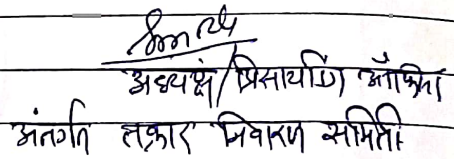 अध्यक्ष/प्रिसायडिंग ऑफिसर
अंतर्गत तक्रार निवारण समिती